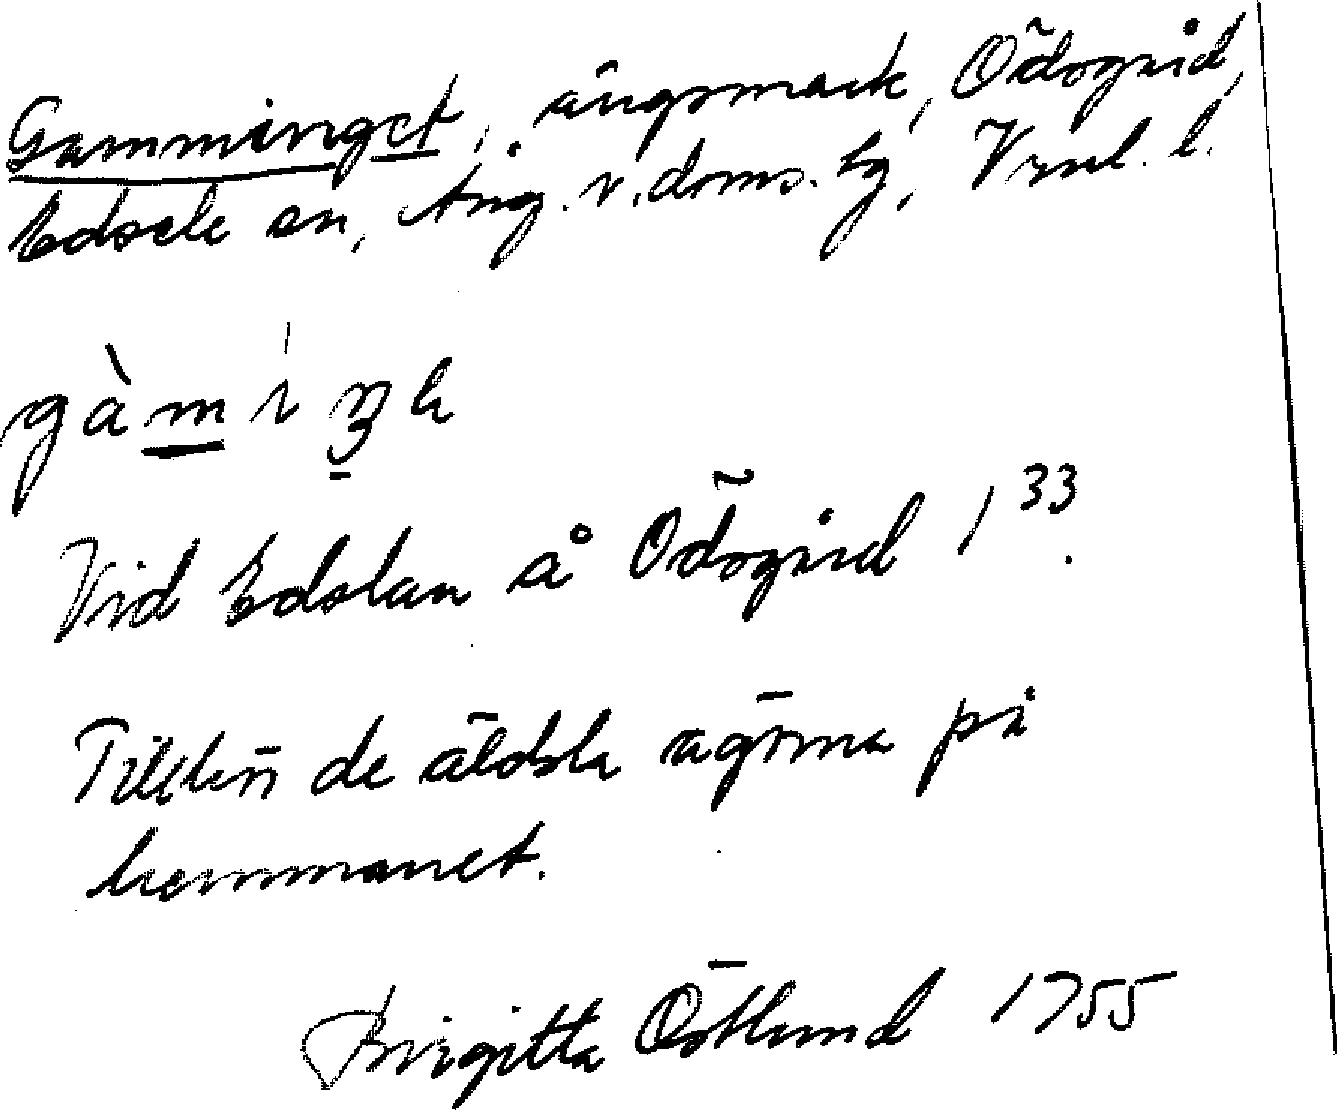 Gamminget, ängsmark, Ödsgård,
Edsele sn, Ång. v. doms. hg, Vrnl. l.
gàmiŋa
Vid Edslan å Ödsgård 1³³.
Tillhör de äldsta ägorna på
hemmanet.
Birgitta Östlund 1955